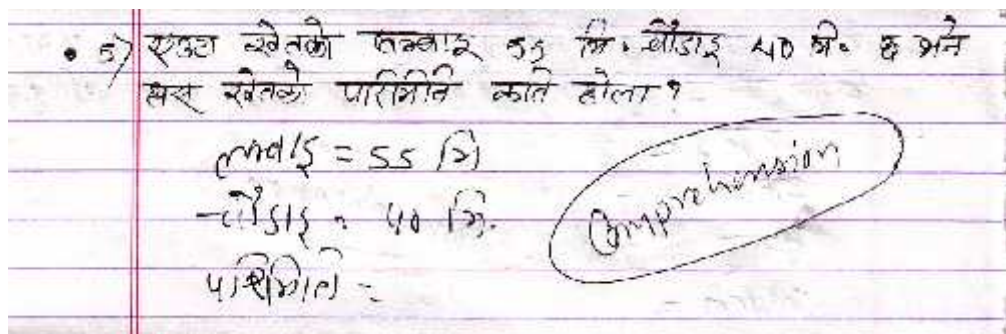 ५) एउटा खेतको लम्बाइ ५५ मि. चौडाइ ४० मि. छ भने
त्यस खेतको परिमिति कति होला ?
लम्बाइ = ५५ मि
चौडाइ = ४० मि.
परिमिति =
Comprehension